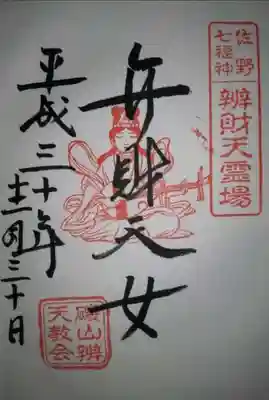 佐野
七福神
辨財天霊場
弁財天女
平成三十年
月三十日
磯山辨
天教会